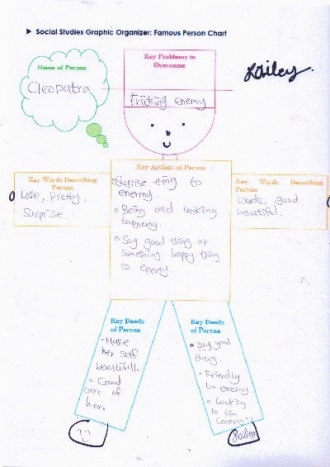 Social Studies Graphic Organizer: Famous Person Chart
Kailey.
Name of Person
Cleopatra
Key Problems to
Overcome
Tricking enemy
Key Actions of Person
Suprise thing to
enermy.
Being and looking
to enemy.
Say good thing or
something happy thing
to enemy.
Key Words Describing
Person
Love, Pretty,
Surprise.
Key Words Describing
Person
Words, good
beautiful.
Key Deeds
of Person
Make
her self
beautifull.
Good
care of
her.
Key Deeds
of Person
Say good
thing.
Friendly
to enemy.
Looking
to
Kailey